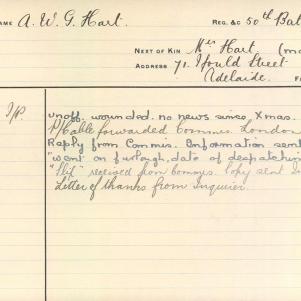 NAME A. W. G. Hart. REG. &C 50th Bat
NEXT OF KIN Mrs Hart. (mo
ADDRESS 71. Gould Street
Adelaide.
unoff. wounded. no news since Xmas.
Cable forwarded Commis. London
Reply from Commis. Information sent
"went on furlough, date of despatching
"Slip" received from Commis. Copy sent
Letter of thanks from Inquirer.